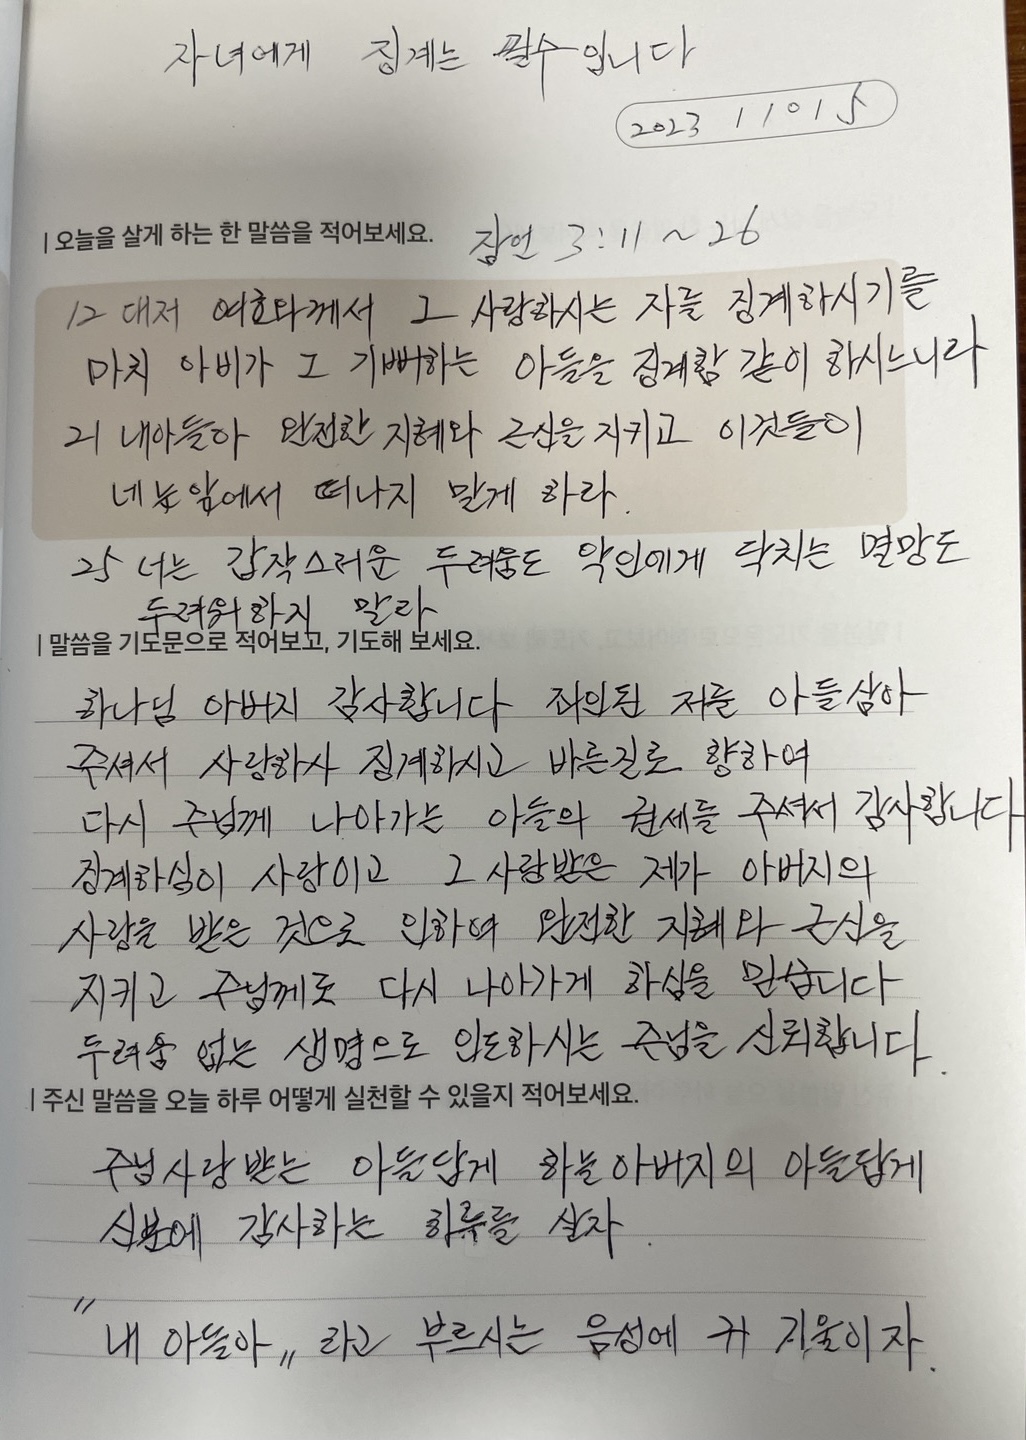 자녀에게 징계는 필수입니다
2023 11 01 5
| 오늘을 살게 하는 한 말씀을 적어보세요. 잠언 3:11~26
12 대저 여호와께서 그 사랑하시는 자를 징계하시기를
마치 아비가 그 기뻐하는 아들을 징계함 같이 하시느니라
21 내아들아 완전한 지혜와 근신을 지키고 이것들이
네 눈 앞에서 떠나지 말게 하라.
25 너는 갑작스러운 두려움도 악인에게 닥치는 멸망도
두려워하지 말라
| 말씀을 기도문으로 적어보고, 기도해 보세요.
하나님 아버지 감사합니다 죄인된 저를 아들삼아
주셔서 사랑하사 징계하시고 바른길로 향하여
다시 주님께 나아가는 아들의 권세를 주셔서 감사합니다
징계하심이 사랑이고 그 사랑받은 제가 아버지의
사랑을 받은 것으로 인하여 완전한 지혜와 근신을
지키고 주님께로 다시 나아가게 하심을 믿습니다
두려움 없는 생명으로 인도하시는 주님을 신뢰합니다.
| 주신 말씀을 오늘 하루 어떻게 실천할 수 있을지 적어보세요.
주님사랑받는 아들답게 하늘아버지의 아들답게
신분에 감사하는 하루를 살자.
"내 아들아" 라고 부르시는 음성에 귀 기울이자.